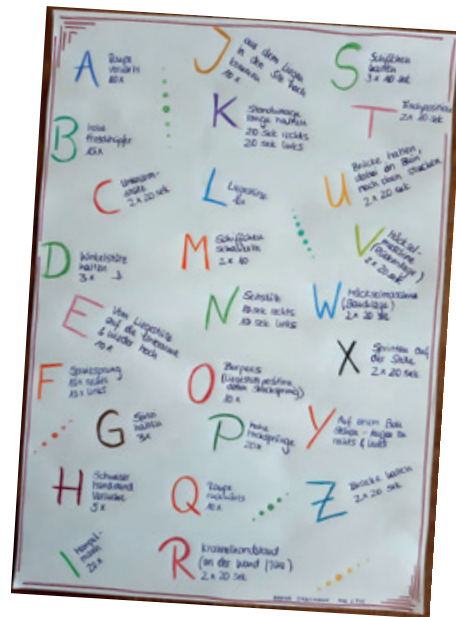 A
Raupe
vorwärts
10x
B
hohe
Froschhüpfer
15x
C
Unterarm-
stütz
2 x 20 sek
D
Winkelstütz
halten
3x
E
Vom Liegestütz
auf die Unterarme
& wieder hoch
10x
F
Spreizsprung
10x rechts
10x links
G
halten
3x
H
Schweizer
Handstand
Versuche
5x
I
Hampel-
mann
20x
J
aus dem Liegen
in den Sitz hoch
kommen
10x
K
Standwaage
lange halten
20 sek rechts
20 sek links
L
Liegestütz
M
Schiffchen
schaukeln
2 x 10
N
Seitstütz
10 sek rechts
10 sek links
O
Burpees
(Liegestützposition,
dann Strecksprung)
10x
P
hohe
Hocksprünge
20x
Q
Raupe
rückwärts
10x
R
Krabbelhandstand
(an der Wand / Tür)
2 x 20 sek
S
Schiffchen
halten
3 x 10 sek
T
Tischposition
2x 20 sek
U
Brücke halten,
dabei ein Bein
nach oben strecken
2 x 20 sek
V
Häcksel-
maschine
(Rückenlage)
2 x 20 sek
W
Häckselmaschine
(Bauchlage)
2 x 20 sek
X
Sprinten auf
der Stelle
2 x 20 sek
Y
Auf einem Bein
stehen - Augen zu
rechts & links
Z
Brücke halten
2 x 20 sek